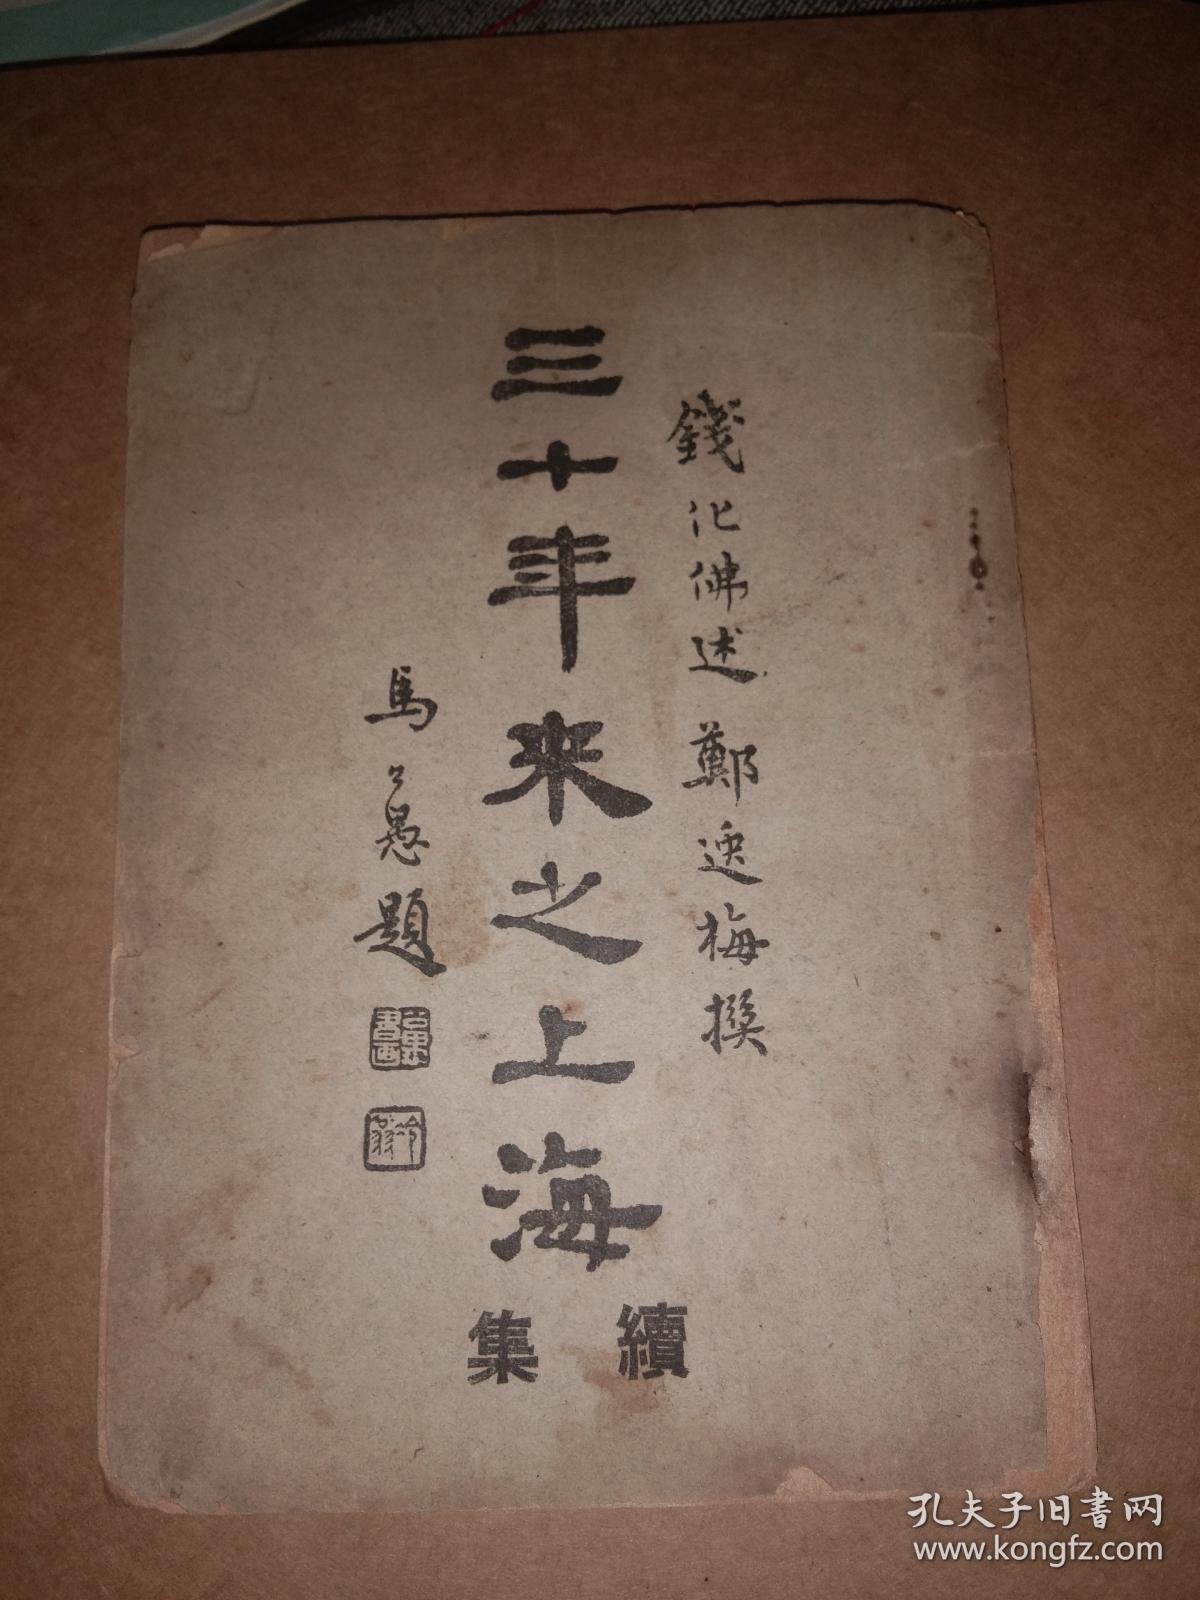 錢化佛述 鄭逸梅撰
三十年来之上海
續集
馬公愚題
孔夫子旧书网
www.kongfz.com